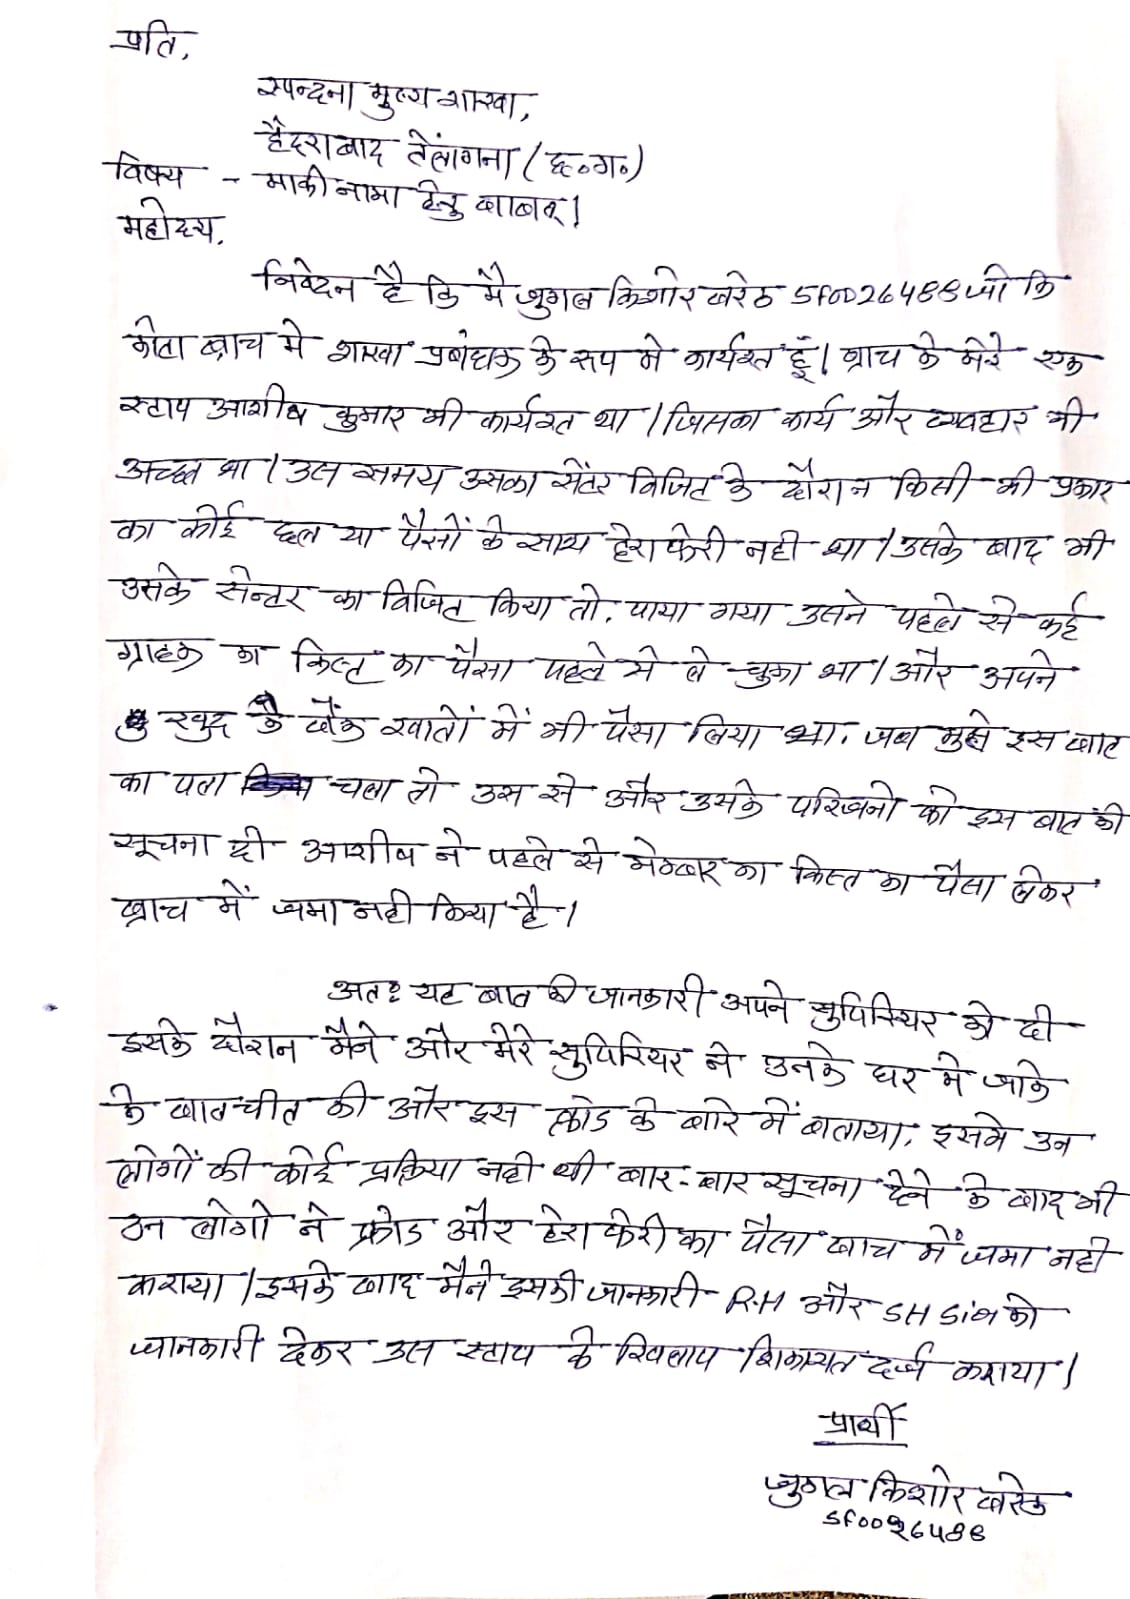 प्रति,
स्पन्दना मुल्य शाखा,
हैदराबाद तेंलागना (छ०ग०)
विषय - माफी नामा हेतु बाबत्।
महोदय,
निवेदन है कि मै जुगल किशोर बरेठ SF0026488 जो कि
कोटा ब्राच मे शाखा प्रबंधक के रूप मे कार्यरत हूँ। ब्राच के मेरे एक
स्टाप आशीष कुमार भी कार्यरत था। जिसका कार्य और व्यवहार भी
अच्छा था। उस समय उसका सेंटर विजिट के दौरान किसी भी प्रकार
का कोई छल या पैसों के साथ हेराफेरी नही था। उसके बाद भी
उसके सेन्टर का विजिट किया तो, पाया गया उसने पहले से कई
ग्राहक का किस्त का पैसा पहले से ले चुका था। और अपने
खुद के बैंक खातों में भी पैसा लिया था, जब मुझे इस बात
का पता चला तो उस से और उसके परिजनो को इस बात की
सूचना दी आशीष ने पहले से मेम्बार का किस्त का पैसा लेकर
ब्राच में जमा नही किया है।
अतः यह बात की जानकारी अपने सुपिरियर को दी
इसके दौरान मैने और मेरे सुपिरियर ने उनके घर मे जाके
के बातचीत की और इस फ्रोड के बारे में बताया, इसमे उन
लोगों की कोई प्रक्रिया नही थी बार-बार सूचना देने के बाद भी
उन लोगो ने फ्रोड और हेराफेरी का पैसा ब्राच में जमा नही
कराया। इसके बाद मैने इसकी जानकारी R.H और SH Sir को
जानकारी देकर उस स्टाप के खिलाप शिकायत दर्ज कराया।
प्रार्थी
जुगल किशोर बरेठ
SF0026488